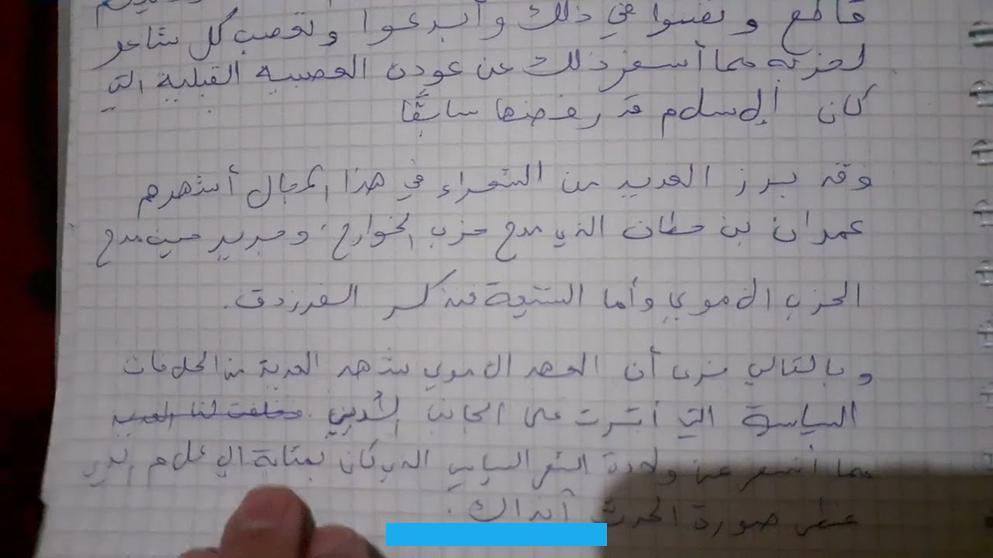 قاطع و نفسوا في ذلك وأبدعوا وتعصب كل شاعر
لحزبه مما أسفر ذلك عن عودت العصبية القبلية التي
كان الإسلام قد رفضها سابقًا
وقد برز العديد من الشعراء في هذا المجال أشهرهم
عمران بن حطان الذي مدح حزب الخوارج، وجرير حيث مدح
الحزب الأموي وأما الشيعة فنذكر الفرزدق.
وبالتالي نرى أن العصر الأموي شهد العديد من الخلافات
السياسة التي أثرت على الجانب الأدبي
مما أسفر عن ولادة الشعر السياسي الذي كان بمثابة الإعلام الذي
صورة الحدث آنذاك.